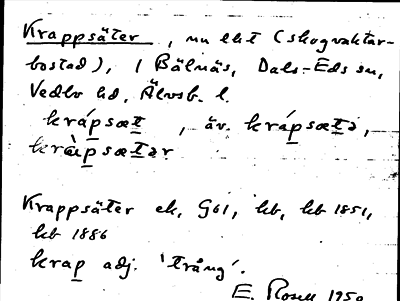 Krappsäter, nu lht (skogvaktar-
bostad), i Bälnäs, Dals-Eds sn,
Vedbo hd, Älvsb. l.
krápsæt, äv. krápsætə,
kràpsætər
Krappsäter ek, G61, hb, hb 1851,
hb 1886
krap adj. 'trång'.
E. Rosell 1950